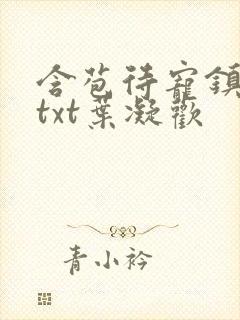 含苞待寵鎮
txt葉凝歡
青小衿